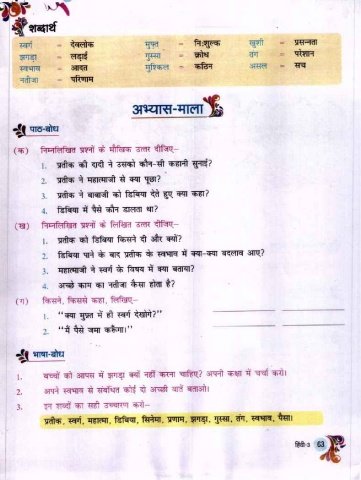 शब्दार्थ
स्वर्ग – देवलोक मुफ़्त – नि:शुल्क खुशी – प्रसन्नता
झगड़ा – लड़ाई गुस्सा – क्रोध तंग – परेशान
स्वभाव – आदत मुश्किल – कठिन असल – सच
नतीजा – परिणाम
अभ्यास-माला
पाठ-बोध
(क) निम्नलिखित प्रश्नों के मौखिक उत्तर दीजिए–
1. प्रतीक की दादी ने उसको कौन-सी कहानी सुनाई?
2. प्रतीक ने महात्माजी से क्या पूछा?
3. प्रतीक ने बाबाजी को डिबिया देते हुए क्या कहा?
4. डिबिया में पैसे कौन डालता था?
(ख) निम्नलिखित प्रश्नों के लिखित उत्तर दीजिए–
1. प्रतीक को डिबिया किसने दी और क्यों?
2. डिबिया पाने के बाद प्रतीक के स्वभाव में क्या-क्या बदलाव आए?
3. महात्माजी ने स्वर्ग के विषय में क्या बताया?
4. अच्छे काम का नतीजा कैसा होता है?
(ग) किसने, किससे कहा, लिखिए–
1. "क्या मुफ़्त में ही स्वर्ग देखोगे?"
2. "मैं पैसे जमा करूँगा।"
भाषा-बोध
1. बच्चों को आपस में झगड़ा क्यों नहीं करना चाहिए? अपनी कक्षा में चर्चा करो।
2. अपने स्वभाव से संबंधित कोई दो अच्छी बातें बताओ।
3. इन शब्दों का सही उच्चारण करो–
प्रतीक, स्वर्ग, महात्मा, डिबिया, सिनेमा, प्रणाम, झगड़ा, गुस्सा, तंग, स्वभाव, पैसा।
हिंदी-3 63